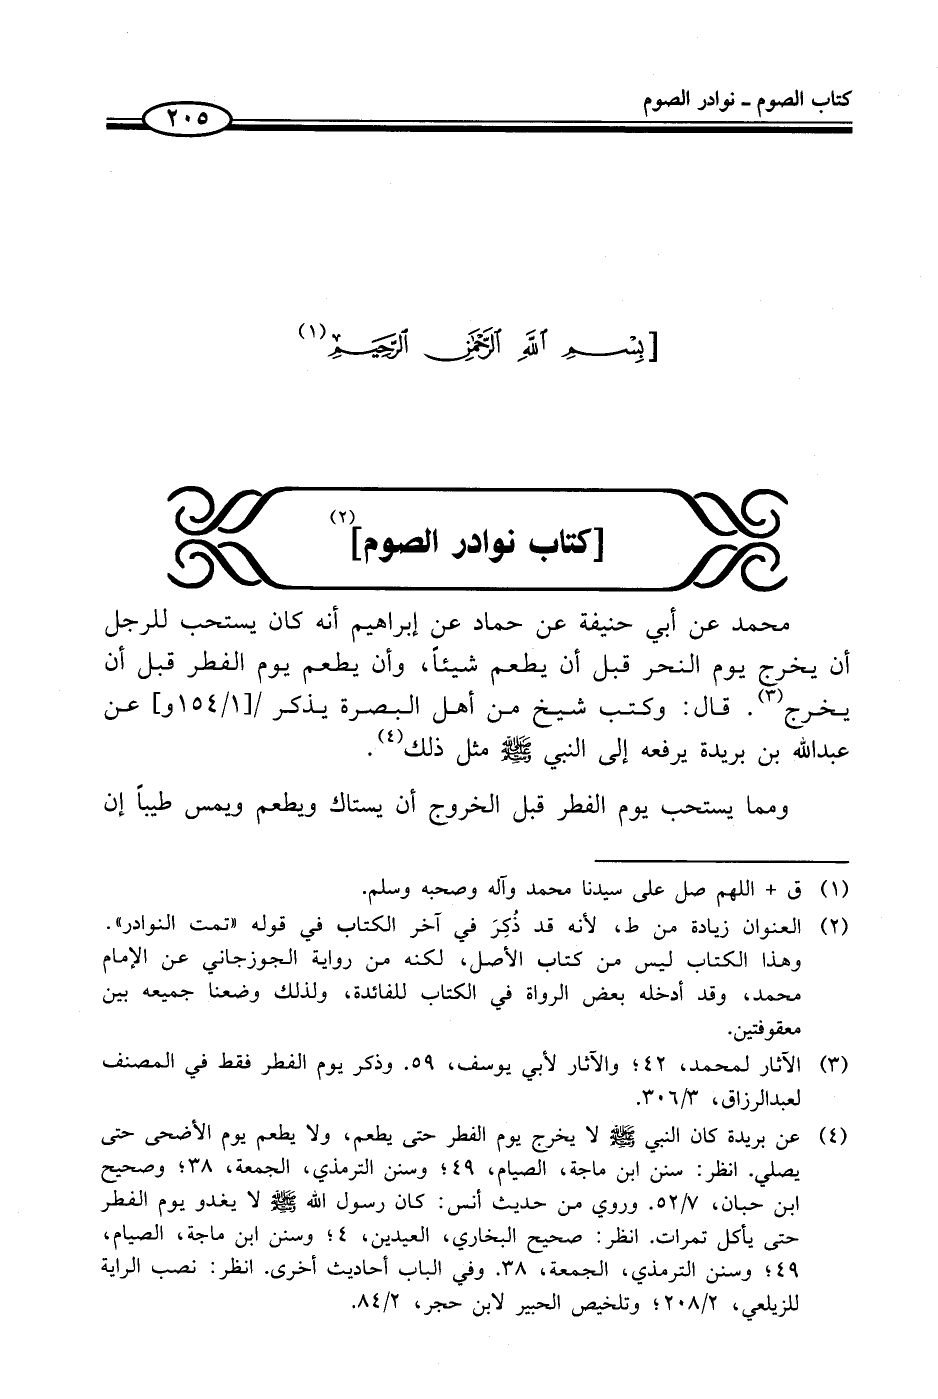 كتاب الصوم - نوادر الصوم
٢٠٥
[بِسْمِ ٱللَّهِ ٱلرَّحْمَٰنِ ٱلرَّحِيمِ(١)
[كتاب نوادر الصوم](٢)
محمد عن أبي حنيفة عن حماد عن إبراهيم أنه كان يستحب للرجل
أن يخرج يوم النحر قبل أن يطعم شيئاً، وأن يطعم يوم الفطر قبل أن
يخرج(٣). قال: وكتب شيخ من أهل البصرة يذكر /[١٥٤/١و] عن
عبدالله بن بريدة يرفعه إلى النبي ﷺ مثل ذلك(٤).
ومما يستحب يوم الفطر قبل الخروج أن يستاك ويطعم ويمس طيباً إن
(١) ق + اللهم صل على سيدنا محمد وآله وصحبه وسلم.
(٢) العنوان زيادة من ط، لأنه قد ذُكِرَ في آخر الكتاب في قوله «تمت النوادر».
وهذا الكتاب ليس من كتاب الأصل، لكنه من رواية الجوزجاني عن الإمام
محمد، وقد أدخله بعض الرواة في الكتاب للفائدة، ولذلك وضعنا جميعه بين
معقوفتين.
(٣) الآثار لمحمد، ٤٢؛ والآثار لأبي يوسف، ٥٩. وذكر يوم الفطر فقط في المصنف
لعبدالرزاق، ٣٠٦/٣.
(٤) عن بريدة كان النبي ﷺ لا يخرج يوم الفطر حتى يطعم، ولا يطعم يوم الأضحى حتى
يصلي. انظر: سنن ابن ماجة، الصيام، ٤٩؛ وسنن الترمذي، الجمعة، ٣٨؛ وصحيح
ابن حبان، ٥٢/٧. وروي من حديث أنس: كان رسول الله ﷺ لا يغدو يوم الفطر
حتى يأكل تمرات. انظر: صحيح البخاري، العيدين، ٤؛ وسنن ابن ماجة، الصيام،
٤٩؛ وسنن الترمذي، الجمعة، ٣٨. وفي الباب أحاديث أخرى. انظر: نصب الراية
للزيلعي، ٢٠٨/٢؛ وتلخيص الحبير لابن حجر، ٨٤/٢.